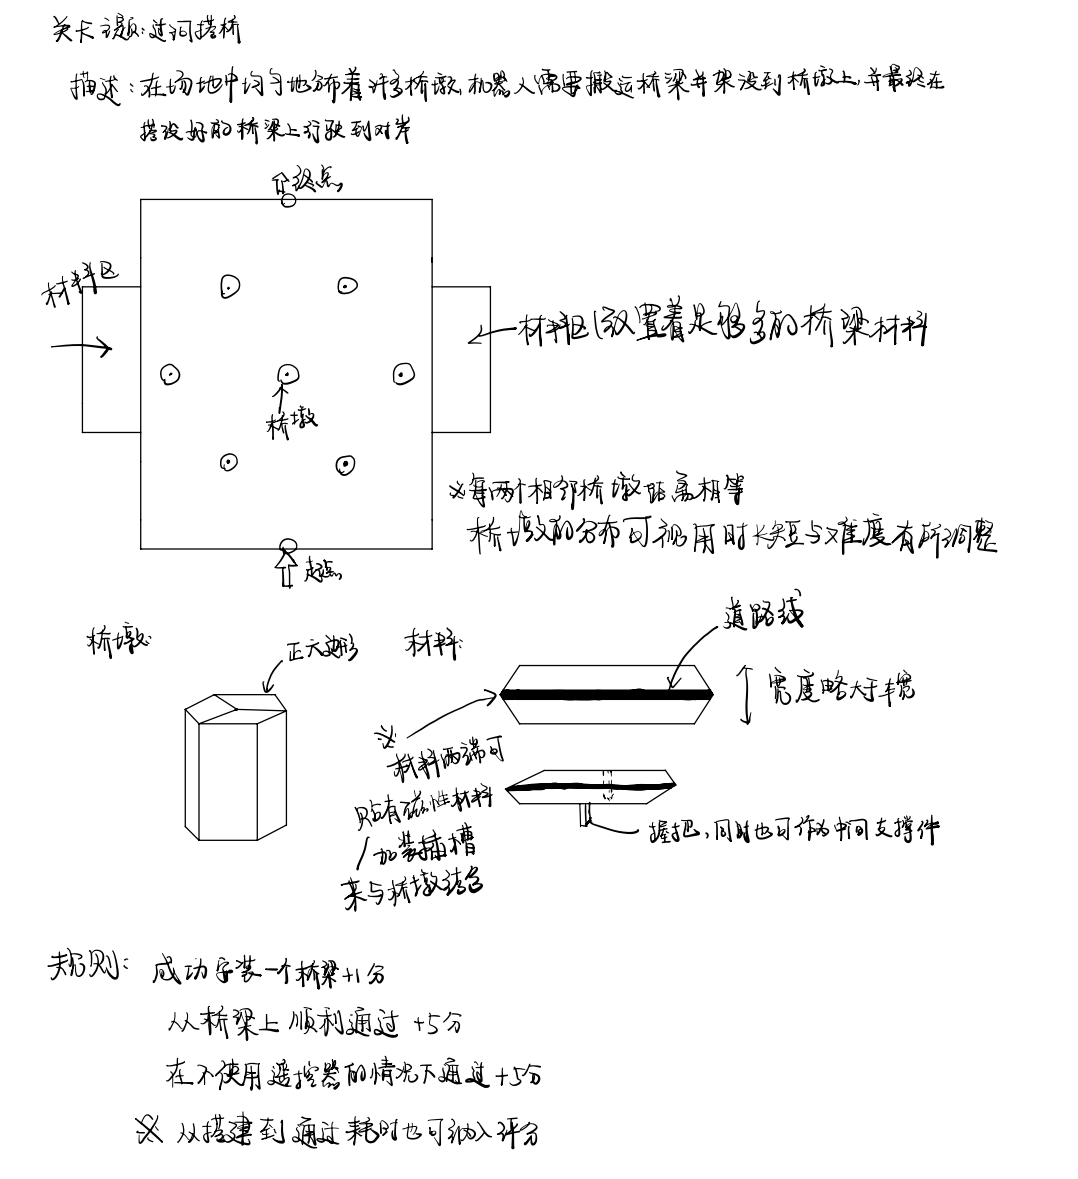 关卡主题:过河搭桥
描述:在场地中均匀地分布着许多桥墩,机器人需要搬运桥梁并架设到桥墩上,并最终在
搭设好的桥梁上行驶到对岸
终点
材料区
材料区(放置着足够多的桥梁材料
桥墩
※每两个相邻桥墩距离相等
桥墩的分布可视用时长短与难度有所调整
起点
桥墩:
正六边形
材料:
道路线
宽度略大于车宽
※
材料两端可
贴有磁性材料
/加装插槽
来与桥墩结合
握把,同时也可作为中间支撑件
规则:
成功安装一个桥梁+1分
从桥梁上顺利通过 +5分
在不使用遥控器的情况下通过+5分
※ 从搭建到通过耗时也可纳入评分